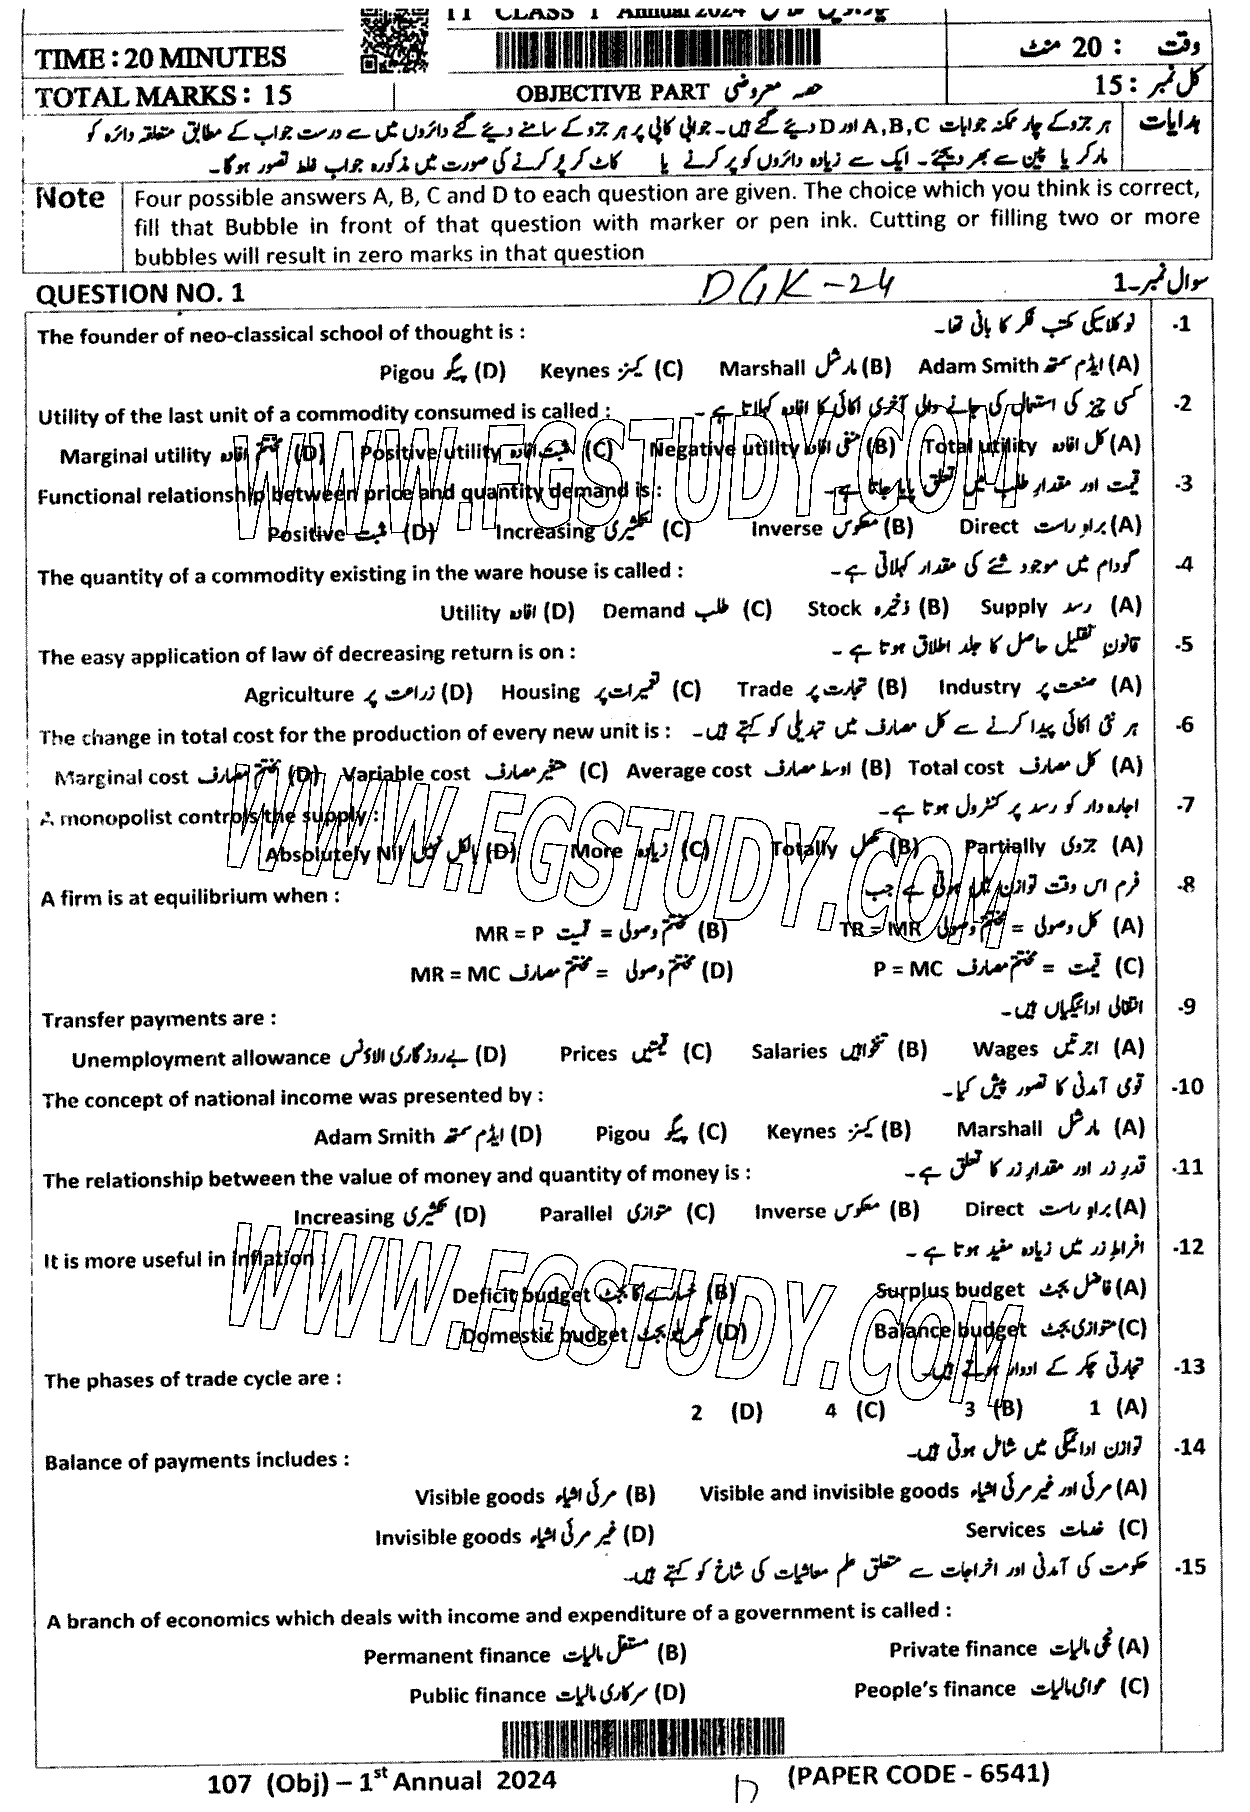 11 CLASS 1 Annual 2024
TIME : 20 MINUTES
وقت : 20 منٹ
TOTAL MARKS : 15
OBJECTIVE PART حصہ معروضی
کل نمبر : 15
ہدایات
ہر جزو کے چار ممکنہ جوابات A,B,C اور D دیئے گئے ہیں۔ جوابی کاپی پر ہر جزو کے سامنے دیئے گئے دائروں میں سے درست جواب کے مطابق متعلقہ دائرہ کو
مارکر یا پین سے بھر دیجئے۔ ایک سے زیادہ دائروں کو پر کرنے یا کاٹ کر پر کرنے کی صورت میں مذکورہ جواب غلط تصور ہوگا۔
Note
Four possible answers A, B, C and D to each question are given. The choice which you think is correct,
fill that Bubble in front of that question with marker or pen ink. Cutting or filling two or more
bubbles will result in zero marks in that question
QUESTION NO. 1 DGK-24 سوال نمبر۔1
-1 نوکلاسیکی مکتب فکر کا بانی تھا۔
The founder of neo-classical school of thought is :
(A) ایڈم سمتھ Adam Smith (B) مارشل Marshall (C) کینز Keynes (D) پیگو Pigou
-2 کسی چیز کی استعمال کی جانے والی آخری اکائی کا افادہ کہلاتا ہے۔
Utility of the last unit of a commodity consumed is called :
(A) کل افادہ Total utility (B) منفی افادہ Negative utility (C) مثبت افادہ Positive utility (D) مختتم افادہ Marginal utility
-3 قیمت اور مقدار طلب میں تعلق پایا جاتا ہے۔
Functional relationship between price and quantity demand is :
(A) براہ راست Direct (B) معکوس Inverse (C) تکثیری Increasing (D) مثبت Positive
-4 گودام میں موجود شئے کی مقدار کہلاتی ہے۔
The quantity of a commodity existing in the ware house is called :
(A) رسد Supply (B) ذخیرہ Stock (C) طلب Demand (D) افادہ Utility
-5 قانون تقلیل حاصل کا جلد اطلاق ہوتا ہے۔
The easy application of law of decreasing return is on :
(A) صنعت پر Industry (B) تجارت پر Trade (C) تعمیرات پر Housing (D) زراعت پر Agriculture
-6 ہر نئی اکائی پیدا کرنے سے کل مصارف میں تبدیلی کو کہتے ہیں۔
The change in total cost for the production of every new unit is :
(A) کل مصارف Total cost (B) اوسط مصارف Average cost (C) متغیر مصارف Variable cost (D) مختتم مصارف Marginal cost
-7 اجارہ دار کو رسد پر کنٹرول ہوتا ہے۔
A monopolist controls the supply :
(A) جزوی Partially (B) مکمل Totally (C) زیادہ More (D) بالکل نہیں Absolutely Nil
-8 فرم اس وقت توازن میں ہوتی ہے جب
A firm is at equilibrium when :
(A) کل وصولی = مختتم وصولی TR = MR (B) مختتم وصولی = قیمت MR = P
(C) قیمت = مختتم مصارف P = MC (D) مختتم وصولی = مختتم مصارف MR = MC
-9 انتقالی ادائیگیاں ہیں۔
Transfer payments are :
(A) اجرتیں Wages (B) تنخواہیں Salaries (C) قیمتیں Prices (D) بے روزگاری الاؤنس Unemployment allowance
-10 قومی آمدنی کا تصور پیش کیا۔
The concept of national income was presented by :
(A) مارشل Marshall (B) کینز Keynes (C) پیگو Pigou (D) ایڈم سمتھ Adam Smith
-11 قدر زر اور مقدار زر کا تعلق ہے۔
The relationship between the value of money and quantity of money is :
(A) براہ راست Direct (B) معکوس Inverse (C) متوازی Parallel (D) تکثیری Increasing
-12 افراط زر میں زیادہ مفید ہوتا ہے۔
It is more useful in inflation :
(A) فاضل بجٹ Surplus budget (B) خسارے کا بجٹ Deficit budget
(C) متوازی بجٹ Balance budget (D) گھریلو بجٹ Domestic budget
-13 تجارتی چکر کے ادوار ہوتے ہیں۔
The phases of trade cycle are :
(A) 1 (B) 3 (C) 4 (D) 2
-14 توازن ادائیگی میں شامل ہوتی ہیں۔
Balance of payments includes :
(A) مرئی اور غیر مرئی اشیاء Visible and invisible goods (B) مرئی اشیاء Visible goods
(C) خدمات Services (D) غیر مرئی اشیاء Invisible goods
-15 حکومت کی آمدنی اور اخراجات سے متعلق علم معاشیات کی شاخ کو کہتے ہیں۔
A branch of economics which deals with income and expenditure of a government is called :
(A) نجی مالیات Private finance (B) مستقل مالیات Permanent finance
(C) عوامی مالیات People's finance (D) سرکاری مالیات Public finance
107 (Obj) – 1st Annual 2024 (PAPER CODE - 6541)
WWW.FGSTUDY.COM
WWW.FGSTUDY.COM
WWW.FGSTUDY.COM